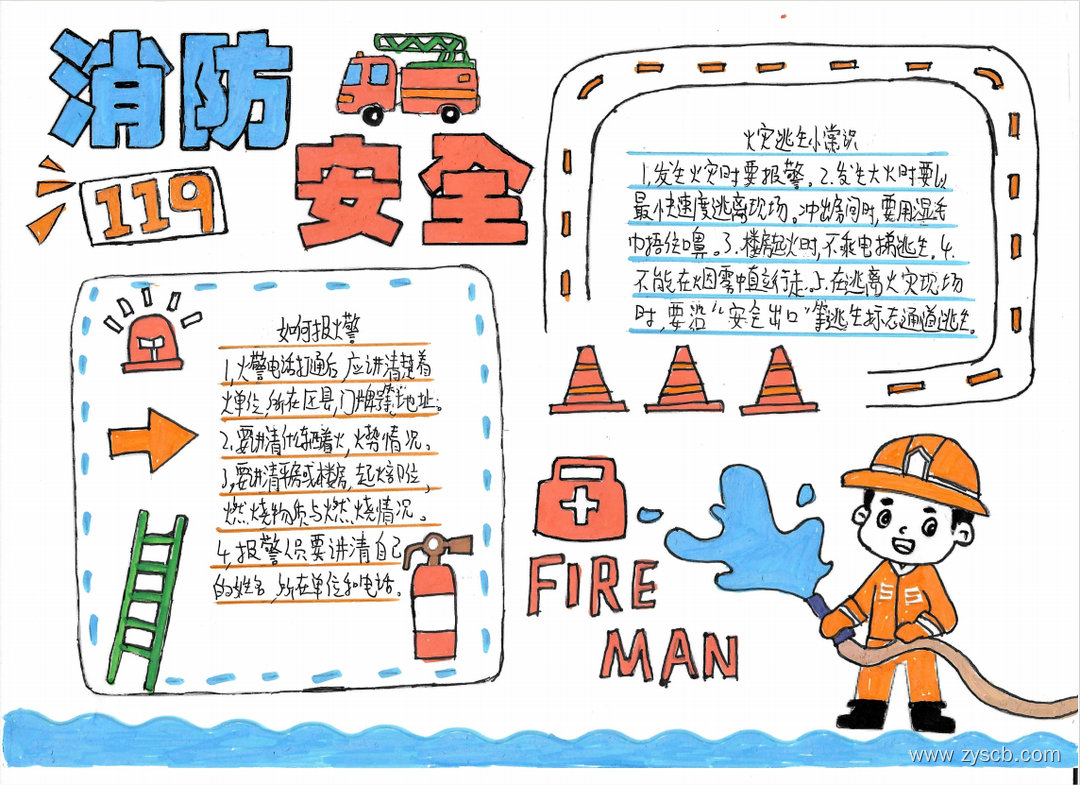 消防
安全
119
火灾逃生小常识
1.发生火灾时要报警。2.发生大火时要以
最小快速度逃离现场。冲出房间时,要用湿毛
巾捂住口鼻。3.楼房起火时,不乘电梯逃生。4.
不能在烟雾中直立行走。5.在逃离火灾现场
时,要沿“安全出口”等逃生标志通道逃生。
如何报火警
1.火警电话打通后,应讲清楚着
火单位,所在区县,门牌等地址。
2.要讲清什么东西着火,火势情况。
3.要讲清平房或楼房,起火部位,
燃烧物质与燃烧情况。
4.报警人员要讲清自己
的姓名,所在单位和电话。
FIRE
MAN
www.zyscb.com